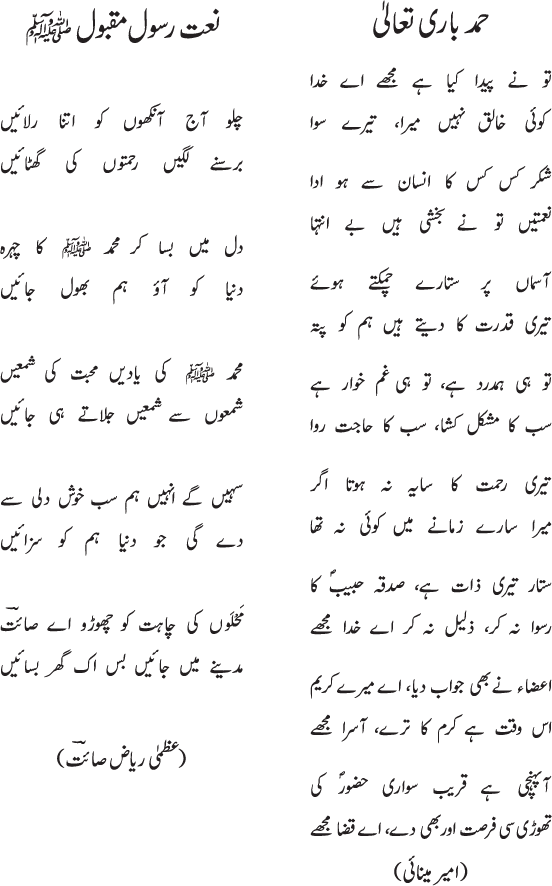 حمد باری تعالیٰ
تو نے پیدا کیا ہے مجھے اے خدا
کوئی خالق نہیں میرا، تیرے سوا
شکر کس کس کا انسان سے ہو ادا
نعمتیں تو نے بخشی ہیں بے انتہا
آسماں پر ستارے چمکتے ہوئے
تیری قدرت کا دیتے ہیں ہم کو پتہ
تو ہی ہمدرد ہے، تو ہی غم خوار ہے
سب کا مشکل کشا، سب کا حاجت روا
تیری رحمت کا سایہ نہ ہوتا اگر
میرا سارے زمانے میں کوئی نہ تھا
ستار تیری ذات ہے، صدقہ حبیبؐ کا
رسوا نہ کر، ذلیل نہ کر اے خدا مجھے
اعضاء نے بھی جواب دیا، اے میرے کریم
اس وقت ہے کرم کا ترے، آسرا مجھے
آ پہنچی ہے قریب سواری حضورؐ کی
تھوڑی سی فرصت اور بھی دے، اے قضا مجھے
(امیر مینائی)
نعت رسول مقبول ﷺ
چلو آج آنکھوں کو اتنا رلائیں
برسنے لگیں رحمتوں کی گھٹائیں
دل میں بسا کر محمد ﷺ کا چہرہ
دنیا کو آؤ ہم بھول جائیں
محمد ﷺ کی یادیں محبت کی شمعیں
شمعوں سے شمعیں جلاتے ہی جائیں
سہیں گے انہیں ہم سب خوش دلی سے
دے گی جو دنیا ہم کو سزائیں
مَحْلَوں کی چاہت کو چھوڑو اے صائبؔ
مدینے میں جائیں بس اک گھر بسائیں
(عظمیٰ ریاض صائبؔ)